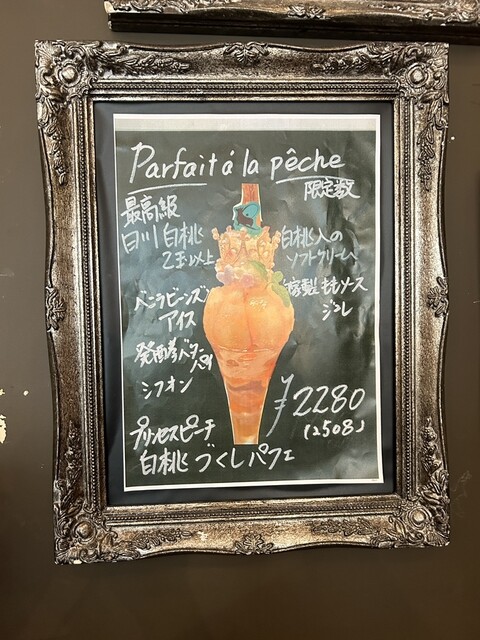 Parfait á la pêche
限定数
最高級
白川白桃
2玉以上
白桃入の
ソフトクリーム
バニラビーンズ
アイス
自家製ももソース
ジュレ
発酵バター
シフォン
¥2280
(2508)
プリンセスピーチ
白桃づくしパフェ